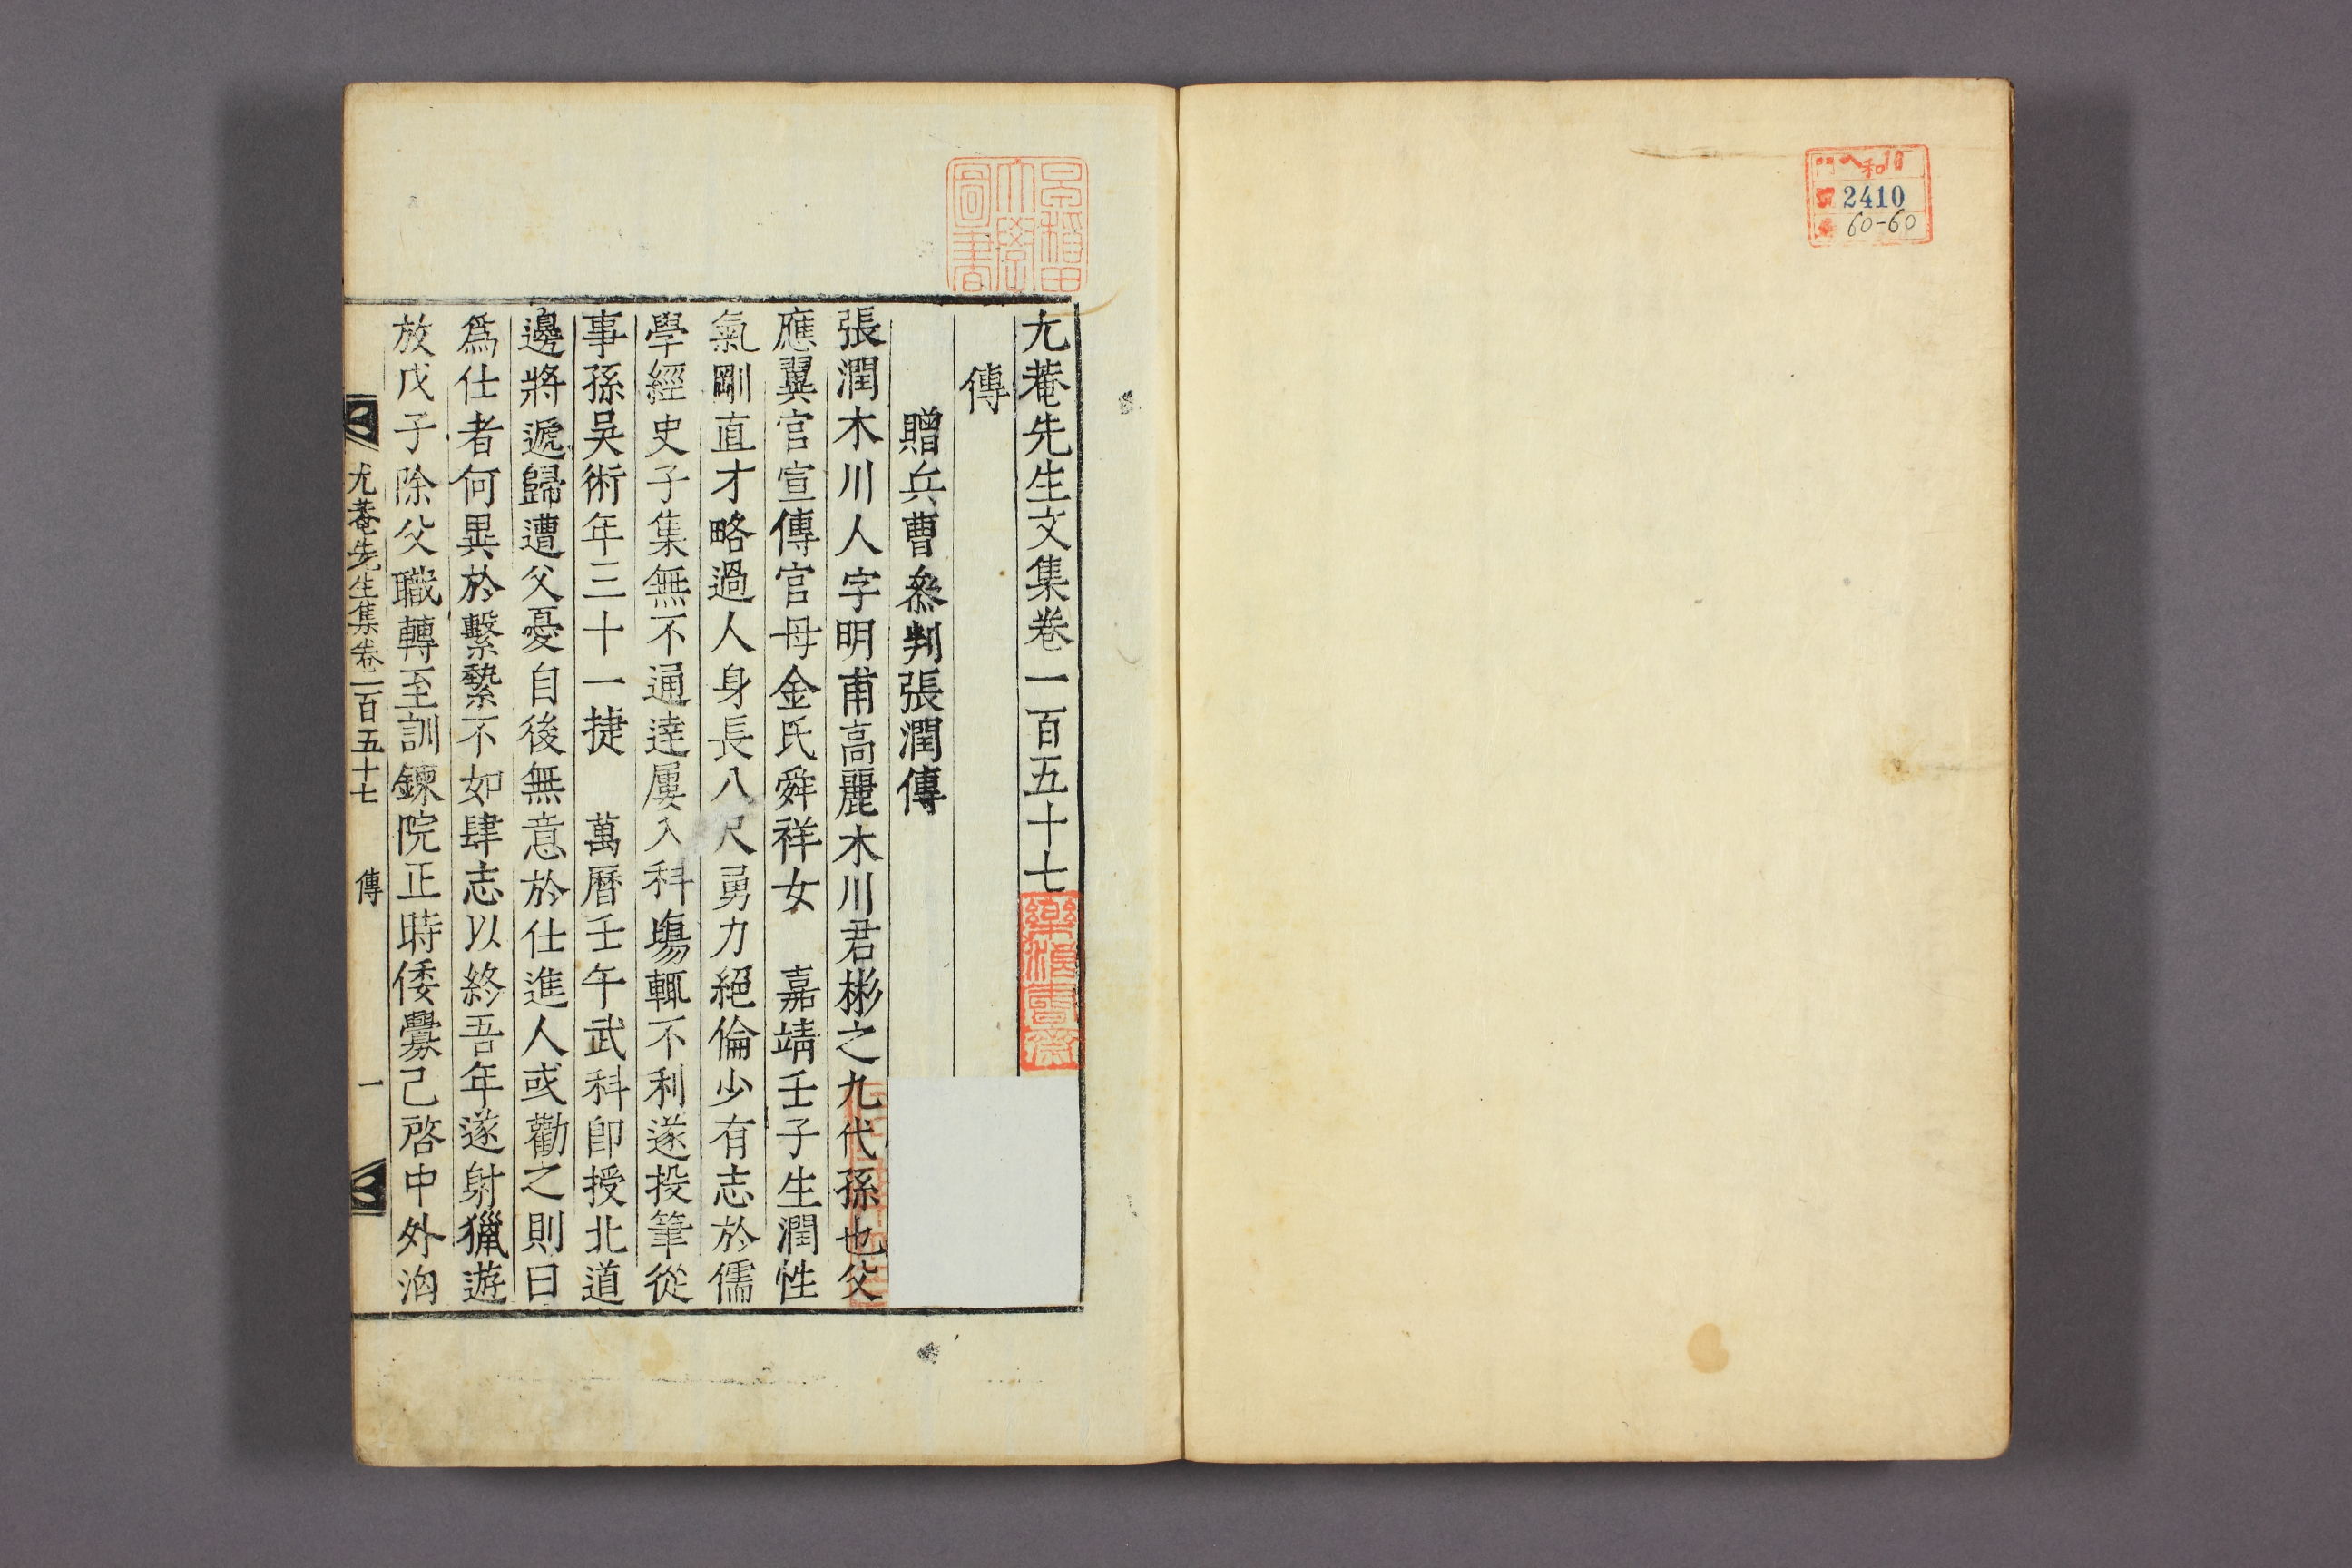 門 ヘ和10
號 2410
卷 60-60
早稲田
大學
圖書
尤菴先生文集卷一百五十七
樂浪書齋
傳
贈兵曹叅判張潤傳
張潤木川人字明甫高麗木川君彬之九代孫也父
應翼官宣傳官母金氏舜祥女 嘉靖壬子生潤性
氣剛直才略過人身長八尺勇力絕倫少有志於儒
學經史子集無不通達屢入科塲輒不利遂投筆從
事孫吳術年三十一捷 萬曆壬午武科卽授北道
邊將遞歸遭父憂自後無意於仕進人或勸之則曰
爲仕者何異於繫縶不如肆志以終吾年遂射獵遊
放戊子除父職轉至訓鍊院正時倭釁已啓中外洶
尤菴先生集卷一百五十七 傳 一